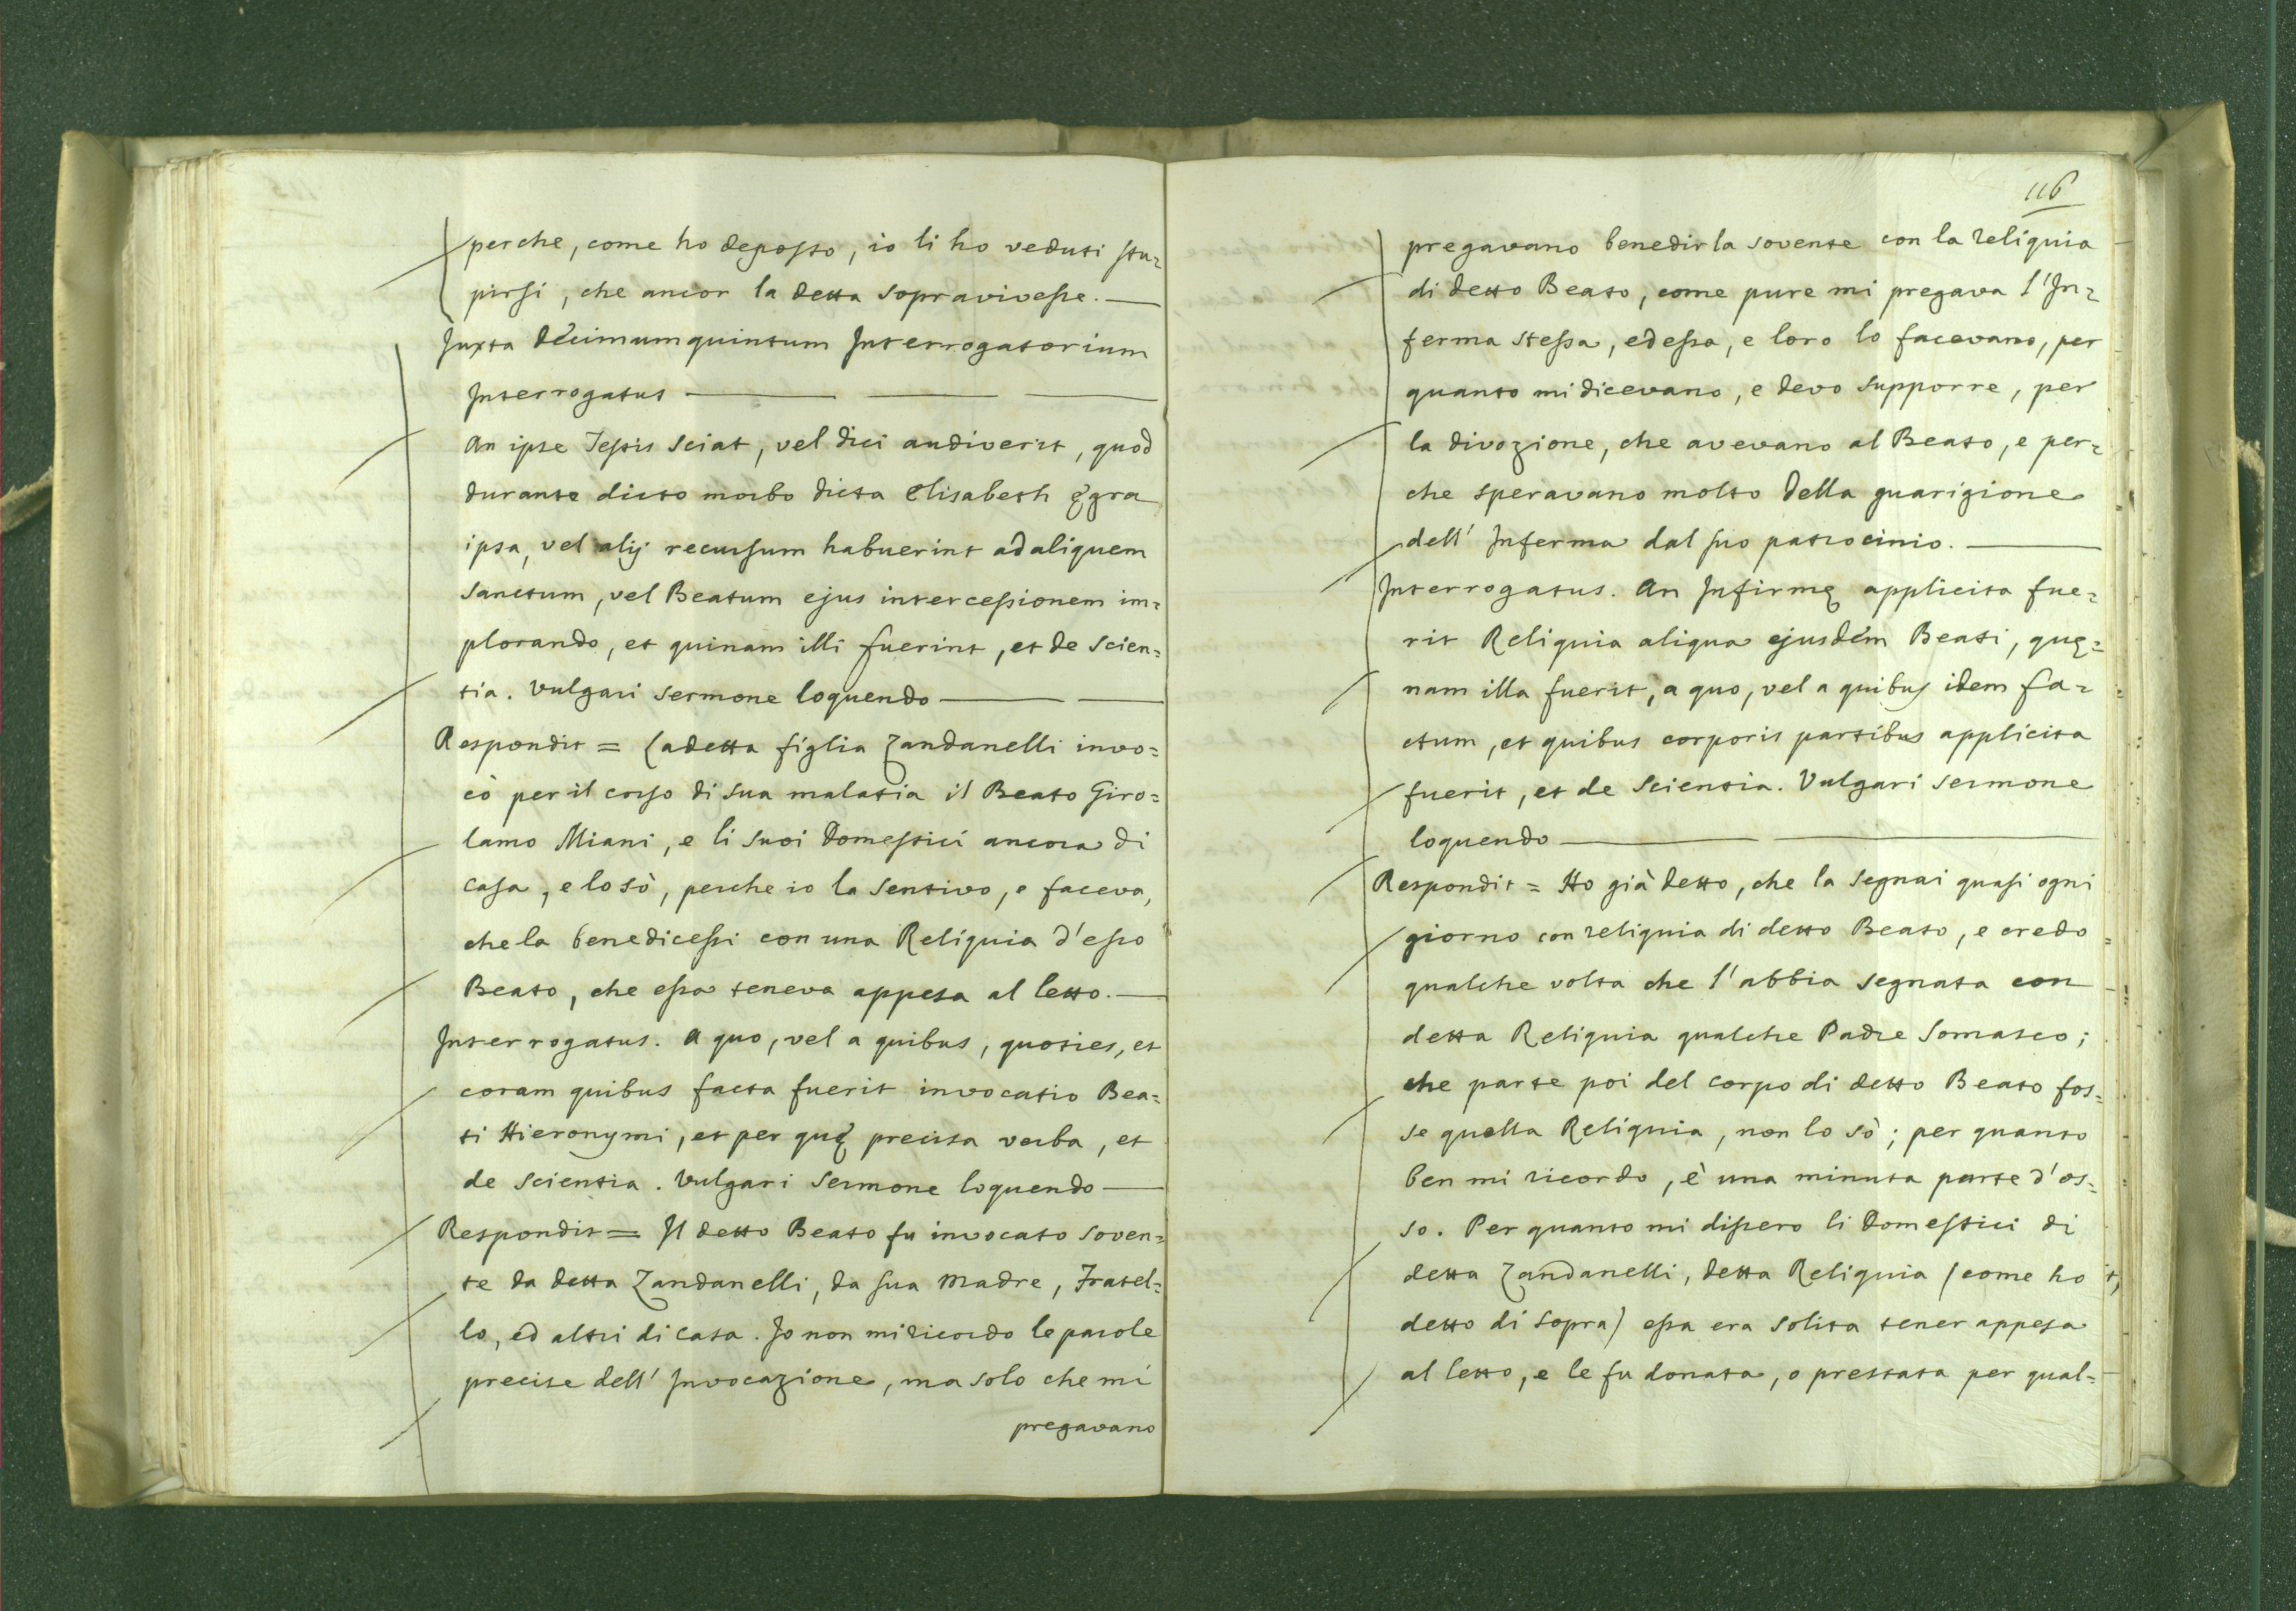 perche, come ho deposto, io li ho veduti stu=
pirsi, che ancor la detta sopravivesse. —
Juxta decimumquintum Interrogatorium
Interrogatus — — —
An ipse Testis sciat, vel dici audiverit, quod
durante dicto morbo dicta Elisabeth ęgra
ipsa, vel alij recursum habuerint ad aliquem
Sanctum, vel Beatum ejus intercessionem im=
plorando, et quinam illi fuerint, et de scien=
tia. Vulgari sermone loquendo — —
Respondit = La detta figlia Zandanelli invo=
cò per il corso di sua malatia il Beato Giro=
lamo Miani, e li suoi Domestici ancora di
casa, e lo sò, perche io la sentivo, e faceva,
che la benedicessi con una Reliquia d'esso
Beato, che essa teneva appesa al letto. —
Interrogatus. A quo, vel a quibus, quoties, et
coram quibus facta fuerit invocatio Bea=
ti Hieronymi, et per quę precisa verba, et
de scientia. Vulgari sermone loquendo —
Respondit = Il detto Beato fu invocato soven=
te da detta Zandanelli, da sua Madre, Fratel=
lo, ed altri di casa. Io non mi ricordo le parole
precise dell' Invocazione, ma solo che mi
pregavano
116
pregavano benedirla sovente con la reliquia
di detto Beato, come pure mi pregava l'In=
ferma stessa, ed essa, e loro lo facevano, per
quanto mi dicevano, e devo supporre, per
la divozione, che avevano al Beato, e per=
che speravano molto della guarigione
dell' Inferma dal suo patrocinio. —
Interrogatus. An Infirmę applicita fue=
rit Reliquia aliqua ejusdem Beati, quę=
nam illa fuerit, a quo, vel a quibus idem fa=
ctum, et quibus corporis partibus applicita
fuerit, et de scientia. Vulgari sermone
loquendo — —
Respondit = Ho già detto, che la segnai quasi ogni
giorno con reliquia di detto Beato, e credo
qualche volta che l'abbia segnata con
detta Reliquia qualche Padre Somasco;
che parte poi del corpo di detto Beato fos=
se quella Reliquia, non lo sò; per quanto
ben mi ricordo, è una minuta parte d'os=
so. Per quanto mi dissero li Domestici di
detta Zandanelli, detta Reliquia (come ho
detto di sopra) essa era solita tener appesa
al letto, e le fu donata, o prestata per qual=